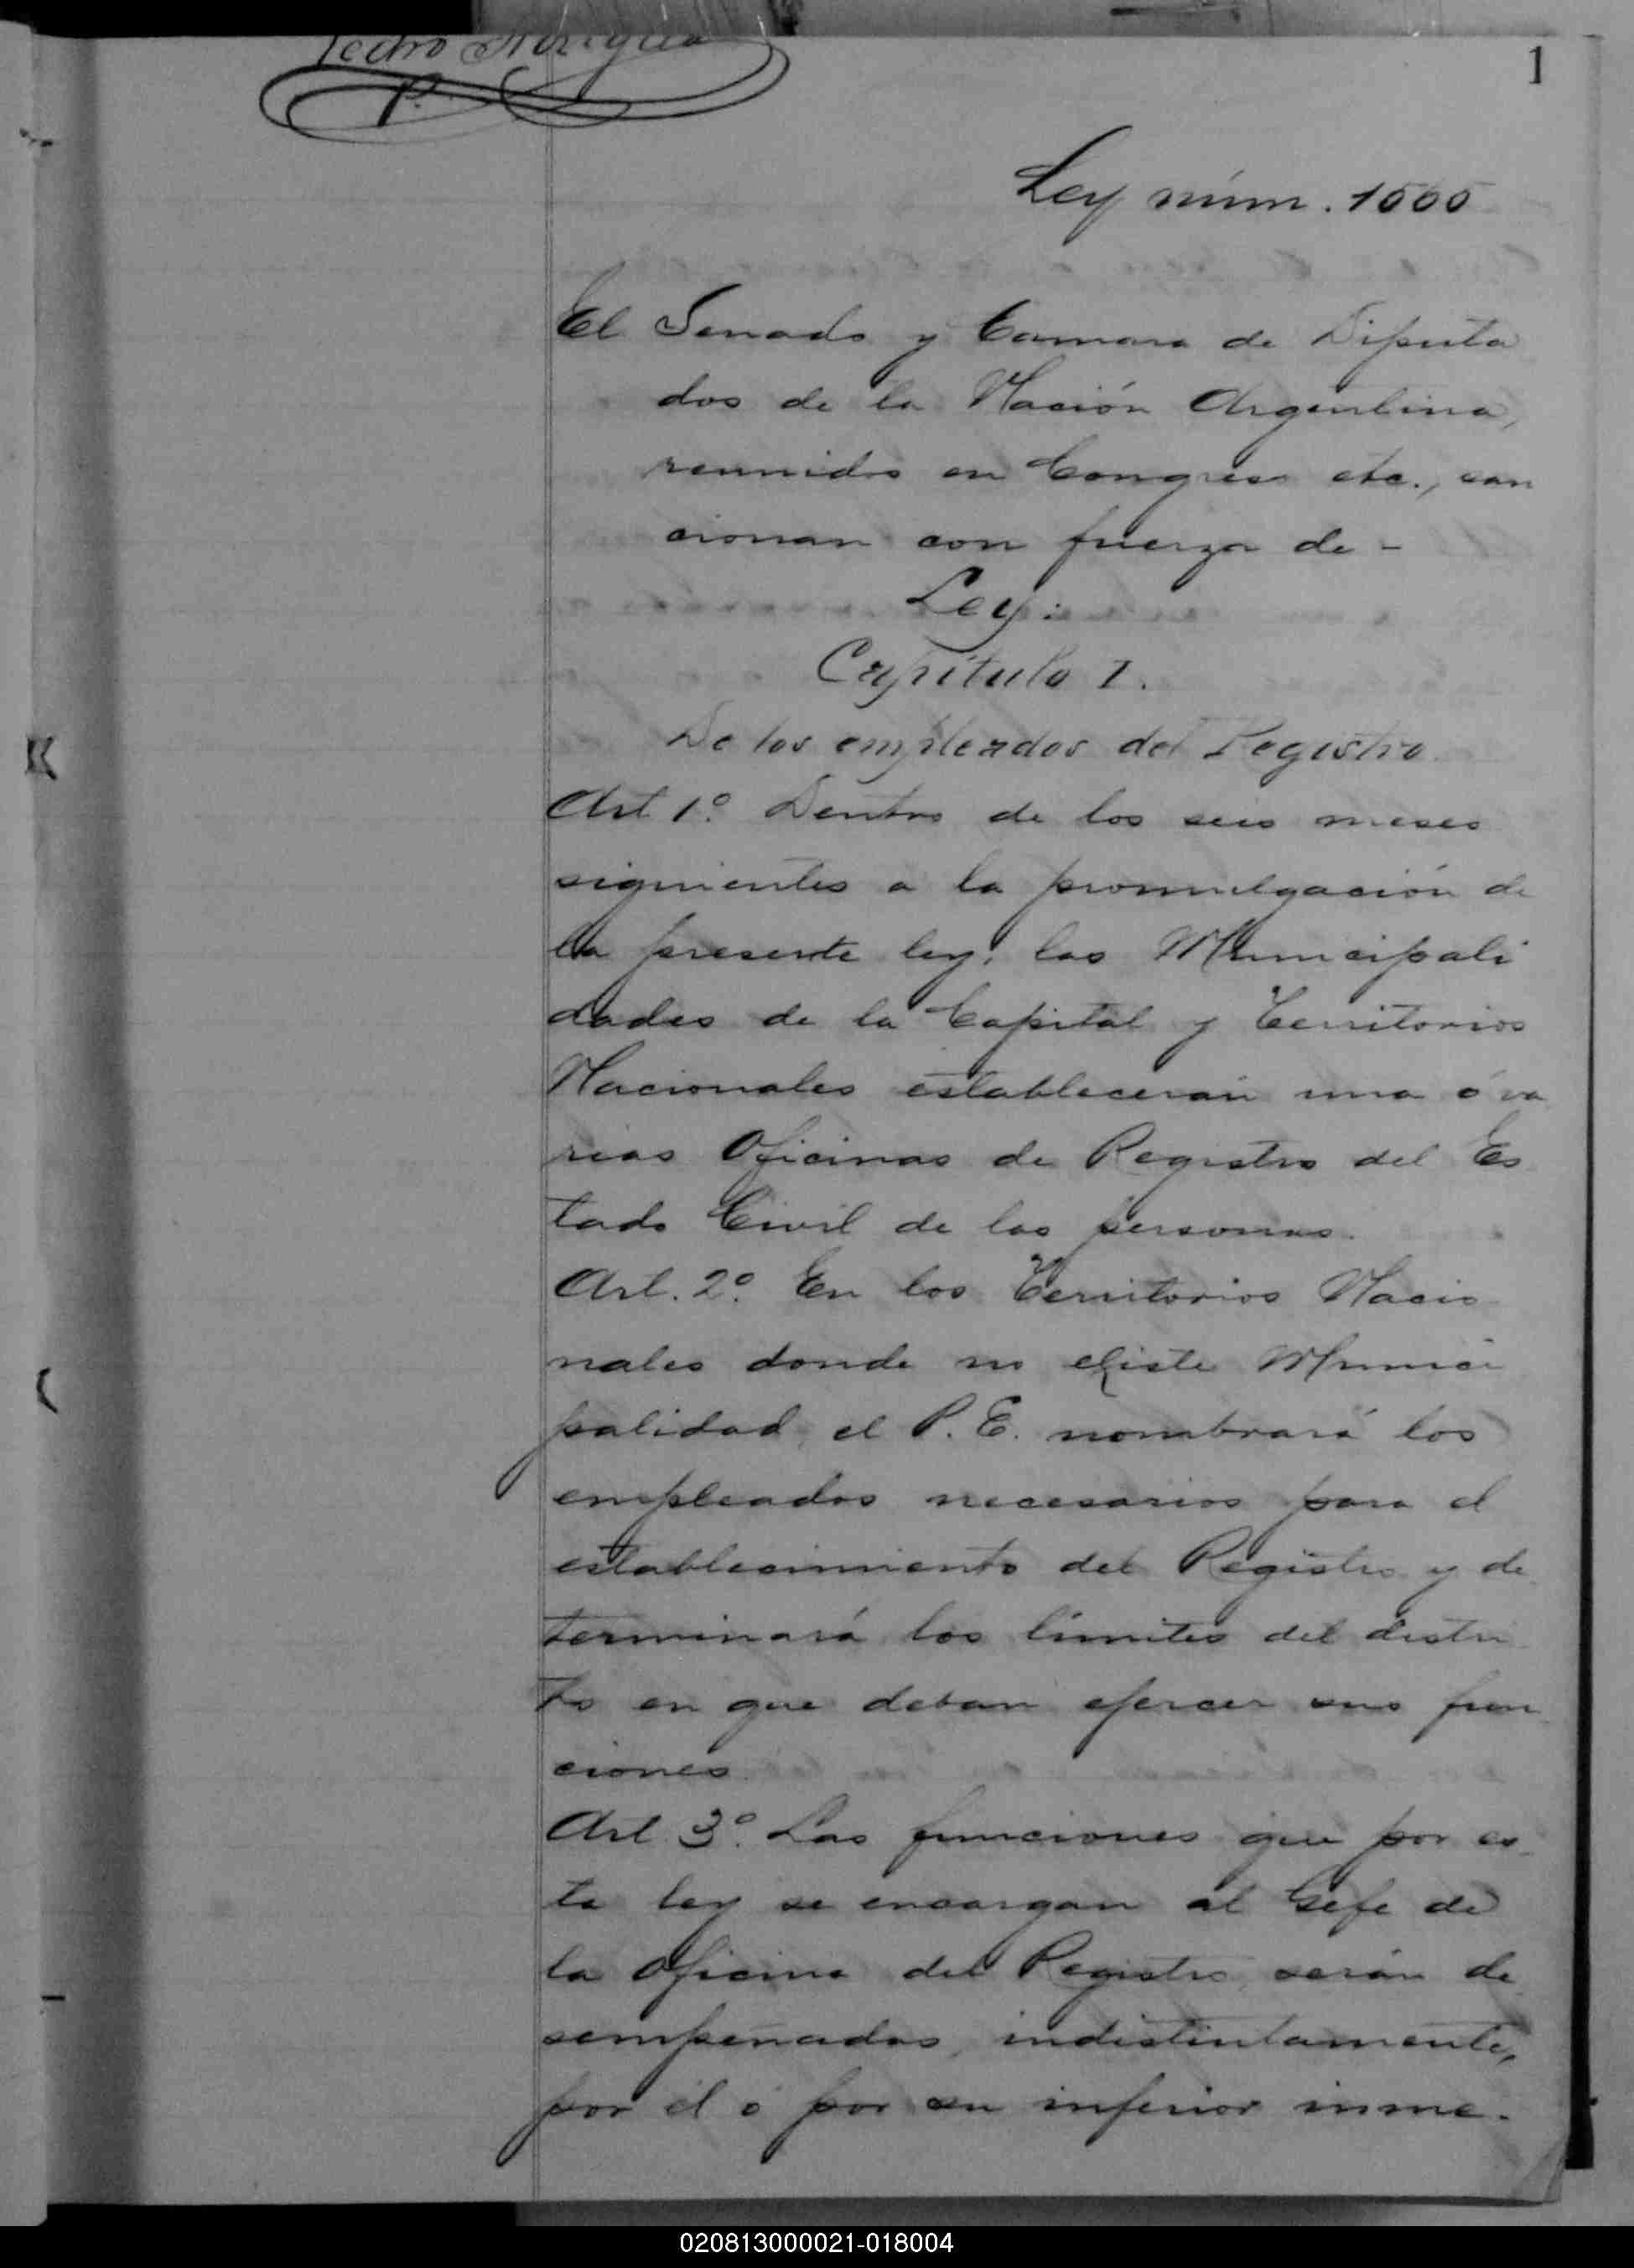 1
Pedro
P.
Ley núm. 1565
El Senado y Camara de Diputa
dos de la Nación Argentina,
reunidos en Congreso etc., san
cionan con fuerza de -
Ley:
Capítulo I.
De los empleados del Registro
Art 1º. Dentro de los seis meses
siguientes a la promulgación de
la presente ley, las Municipali
dades de la Capital y Territorios
Nacionales establecerán una ó va
rias Oficinas de Registro del Es
tado Civil de las personas.
Art. 2º. En los Territorios Nacio
nales donde no existe Munici
palidad, el P. E. nombrará los
empleados necesarios para el
establecimiento del Registro y de
terminará los límites del distri
to en que deban ejercer sus fun
ciones.
Art 3º. Las funciones que por es
ta ley se encargan al Gefe de
la Oficina del Registro, serán de
sempeñadas, indistintamente,
por él ó por su inferior inme-
020813000021-018004